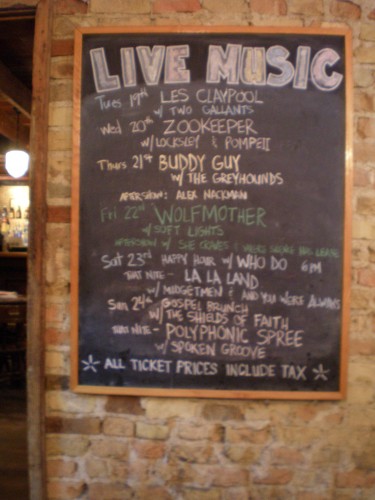 LIVE MUSIC
Tues 19th LES CLAYPOOL
w/ TWO GALLANTS
Wed 20th ZOOKEEPER
w/ LOCKSLEY & POMPEII
Thurs 21st BUDDY GUY
w/ THE GREYHOUNDS
AFTERSHOW: ALEX
Fri 22nd WOLFMOTHER
w/ SOFT LIGHTS
AFTERSHOW w/ SUE
Sat 23rd HAPPY HOUR w/ WHO DO 6PM
THAT NITE - LA LA LAND
w/ MIDGETMEN & AND YOU WERE ALWAYS
Sun 24th GOSPEL BRUNCH
w/ THE SHIELDS OF FAITH
THAT NITE - POLYPHONIC SPREE
w/ SPOKEN GROOVE
* ALL TICKET PRICES INCLUDE TAX *